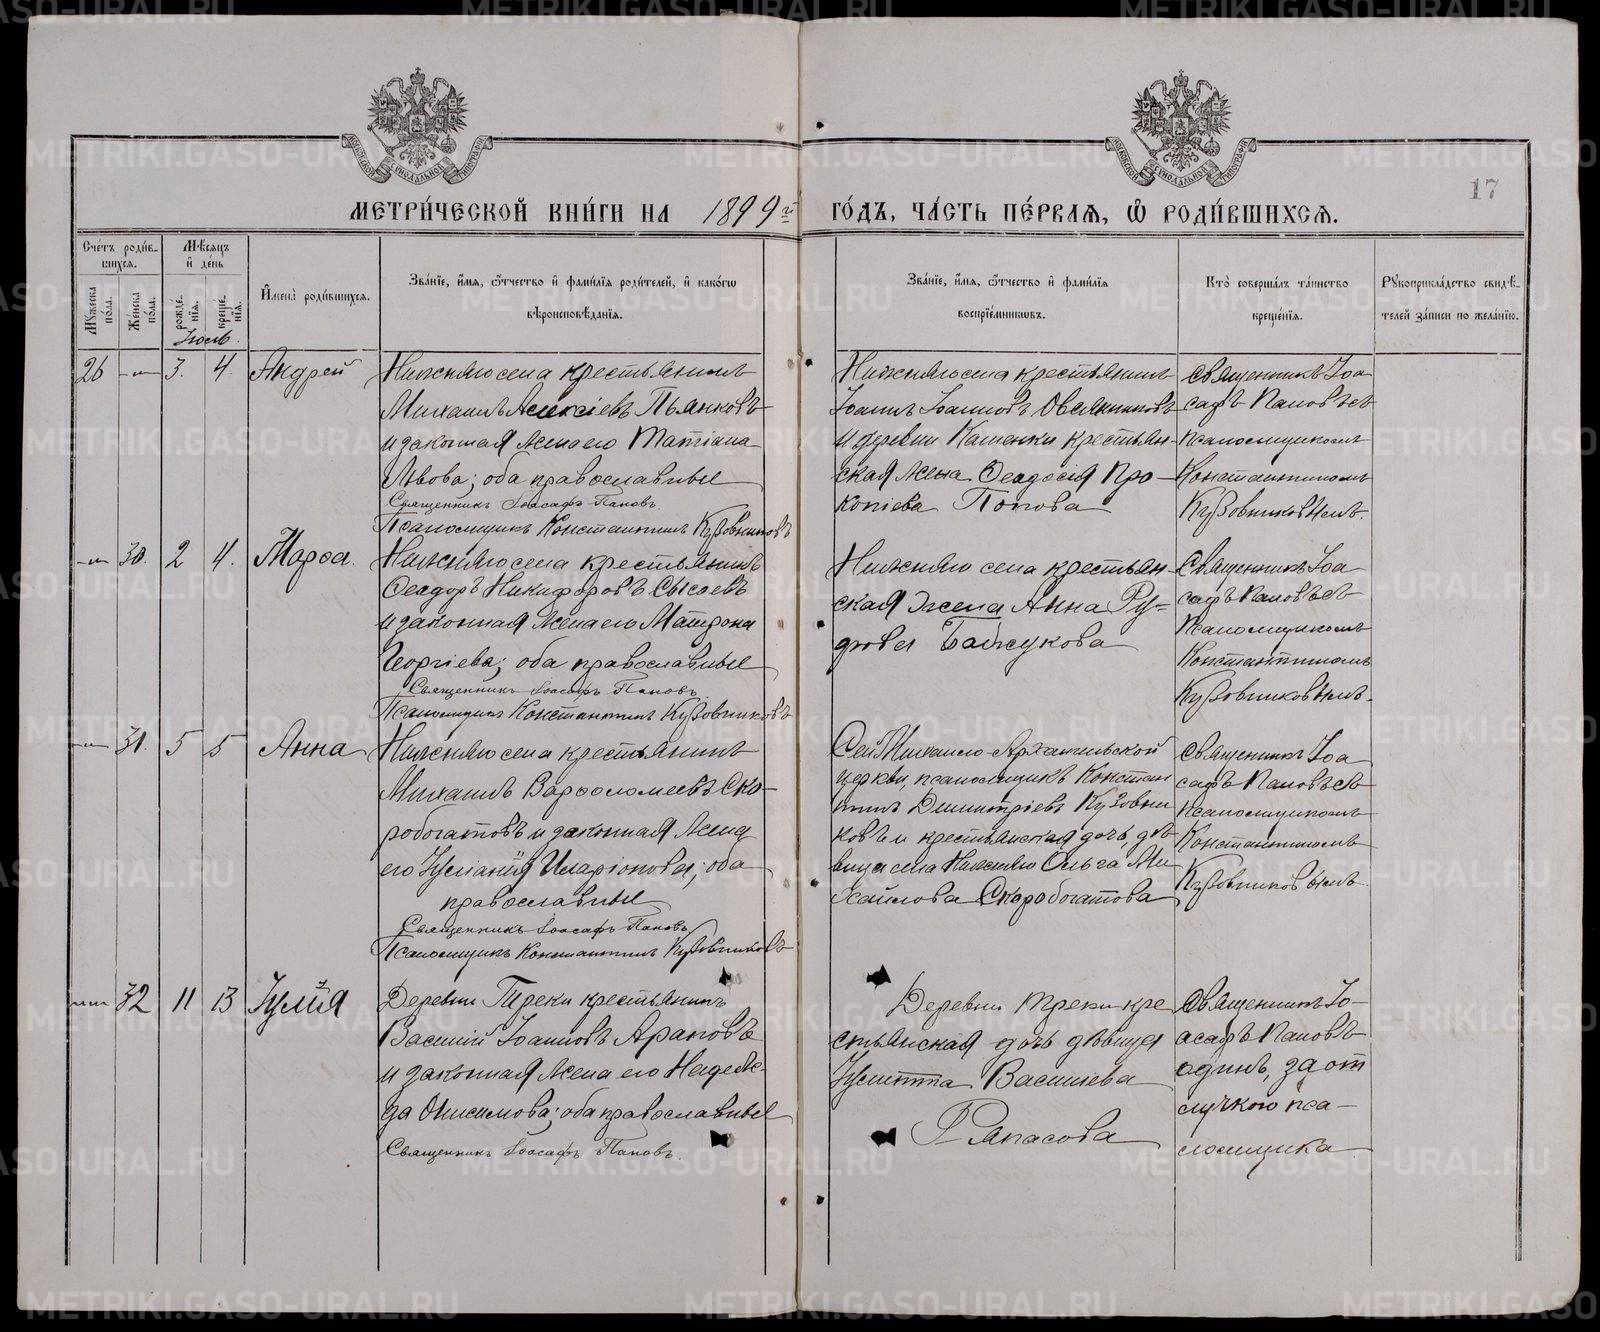 МЕТРИ́ЧЕСКОЙ КНИ́ГИ НА 1899й ГО́ДЪ, ЧА́СТЬ ПЕ́РВАЯ, Ѡ РОДИ́ВШИХСЯ.
17
Сче́тъ роди́в-
шихся.
Мѣсяцъ
и҆ де́нь
Мꙋ́жеска
по́ла.
Же́нска
по́ла.
рожде́-
нїя.
креще́-
нїя.
Іюль.
И҆мена̀ роди́вшихся.
Зва́нїе, и҆́мя, ѻ҆́тчество и҆ фами́лїя роди́телей, и҆ како́гѡ
вѣроисповѣ́данїя.
Зва́нїе, и҆́мя, ѻ҆́тчество и҆ фами́лїя
воспрїе́мникѡвъ.
Кто̀ соверша́лъ та́инство
креще́нїя.
Рꙋкоприкла́дство свидѣ́-
телей за́писи по жела́нїю.
26 -"- 3. 4. Андрей
Нижняго села крестьянинъ
Михаилъ Алексіевъ Пьянковъ
и законная жена его Татіана
Львова; оба православные
Священникъ Іоасафъ Пановъ.
Псаломщикъ Константинъ Кузовниковъ
Нижняго села крестьянинъ
Іоаннъ Іоанновъ Овсянниковъ
и деревни Каменки крестьян-
ская жена Ѳеодосія Про-
копіева Попова
Священникъ Іоа
сафъ Пановъ съ
псаломщикомъ
Константиномъ
Кузовниковымъ.
-"- 30. 2 4. Марѳа.
Нижняго села крестьянинъ
Ѳеодоръ Никифоровъ Сысоевъ
и законная жена его Матрона
Георгіева; оба православные
Священникъ Іоасафъ Пановъ.
Псаломщикъ Константинъ Кузовниковъ
Нижняго села крестьян-
ская жена Анна Ру-
фова Байдукова
Священникъ Іоа
сафъ Пановъ съ
псаломщикомъ
Константиномъ
Кузовниковымъ.
-"- 31. 5 5 Анна
Нижняго села крестьянинъ
Михаилъ Варѳоломеевъ Ско-
робогатовъ и законная жена
его Іуліанія Иларіонова; оба
православные
Священникъ Іоасафъ Пановъ
Псаломщикъ Константинъ Кузовниковъ
Сей Михаило-Архангельской
церкви, псаломщикъ Констан
тинъ Димитріевъ Кузовни
ковъ и крестьянская дочь, дѣ-
вица села Нижняго Ольга Ми
хайлова Скоробогатова
Священникъ Іоа
сафъ Пановъ съ
псаломщикомъ
Константиномъ
Кузовниковымъ.
-"- 32 11 13 Іулія
Деревни Треки крестьянинъ
Василій Іоанновъ Араповъ
и законная жена его Надеж-
да Онисимова; оба православные
Священникъ Іоасафъ Пановъ.
Деревни Треки кре
стьянская дочь дѣвица
Іулитта Васильева
Священникъ Іо-
асафъ Пановъ
одинъ, за от
лучкою пса-
ломщика